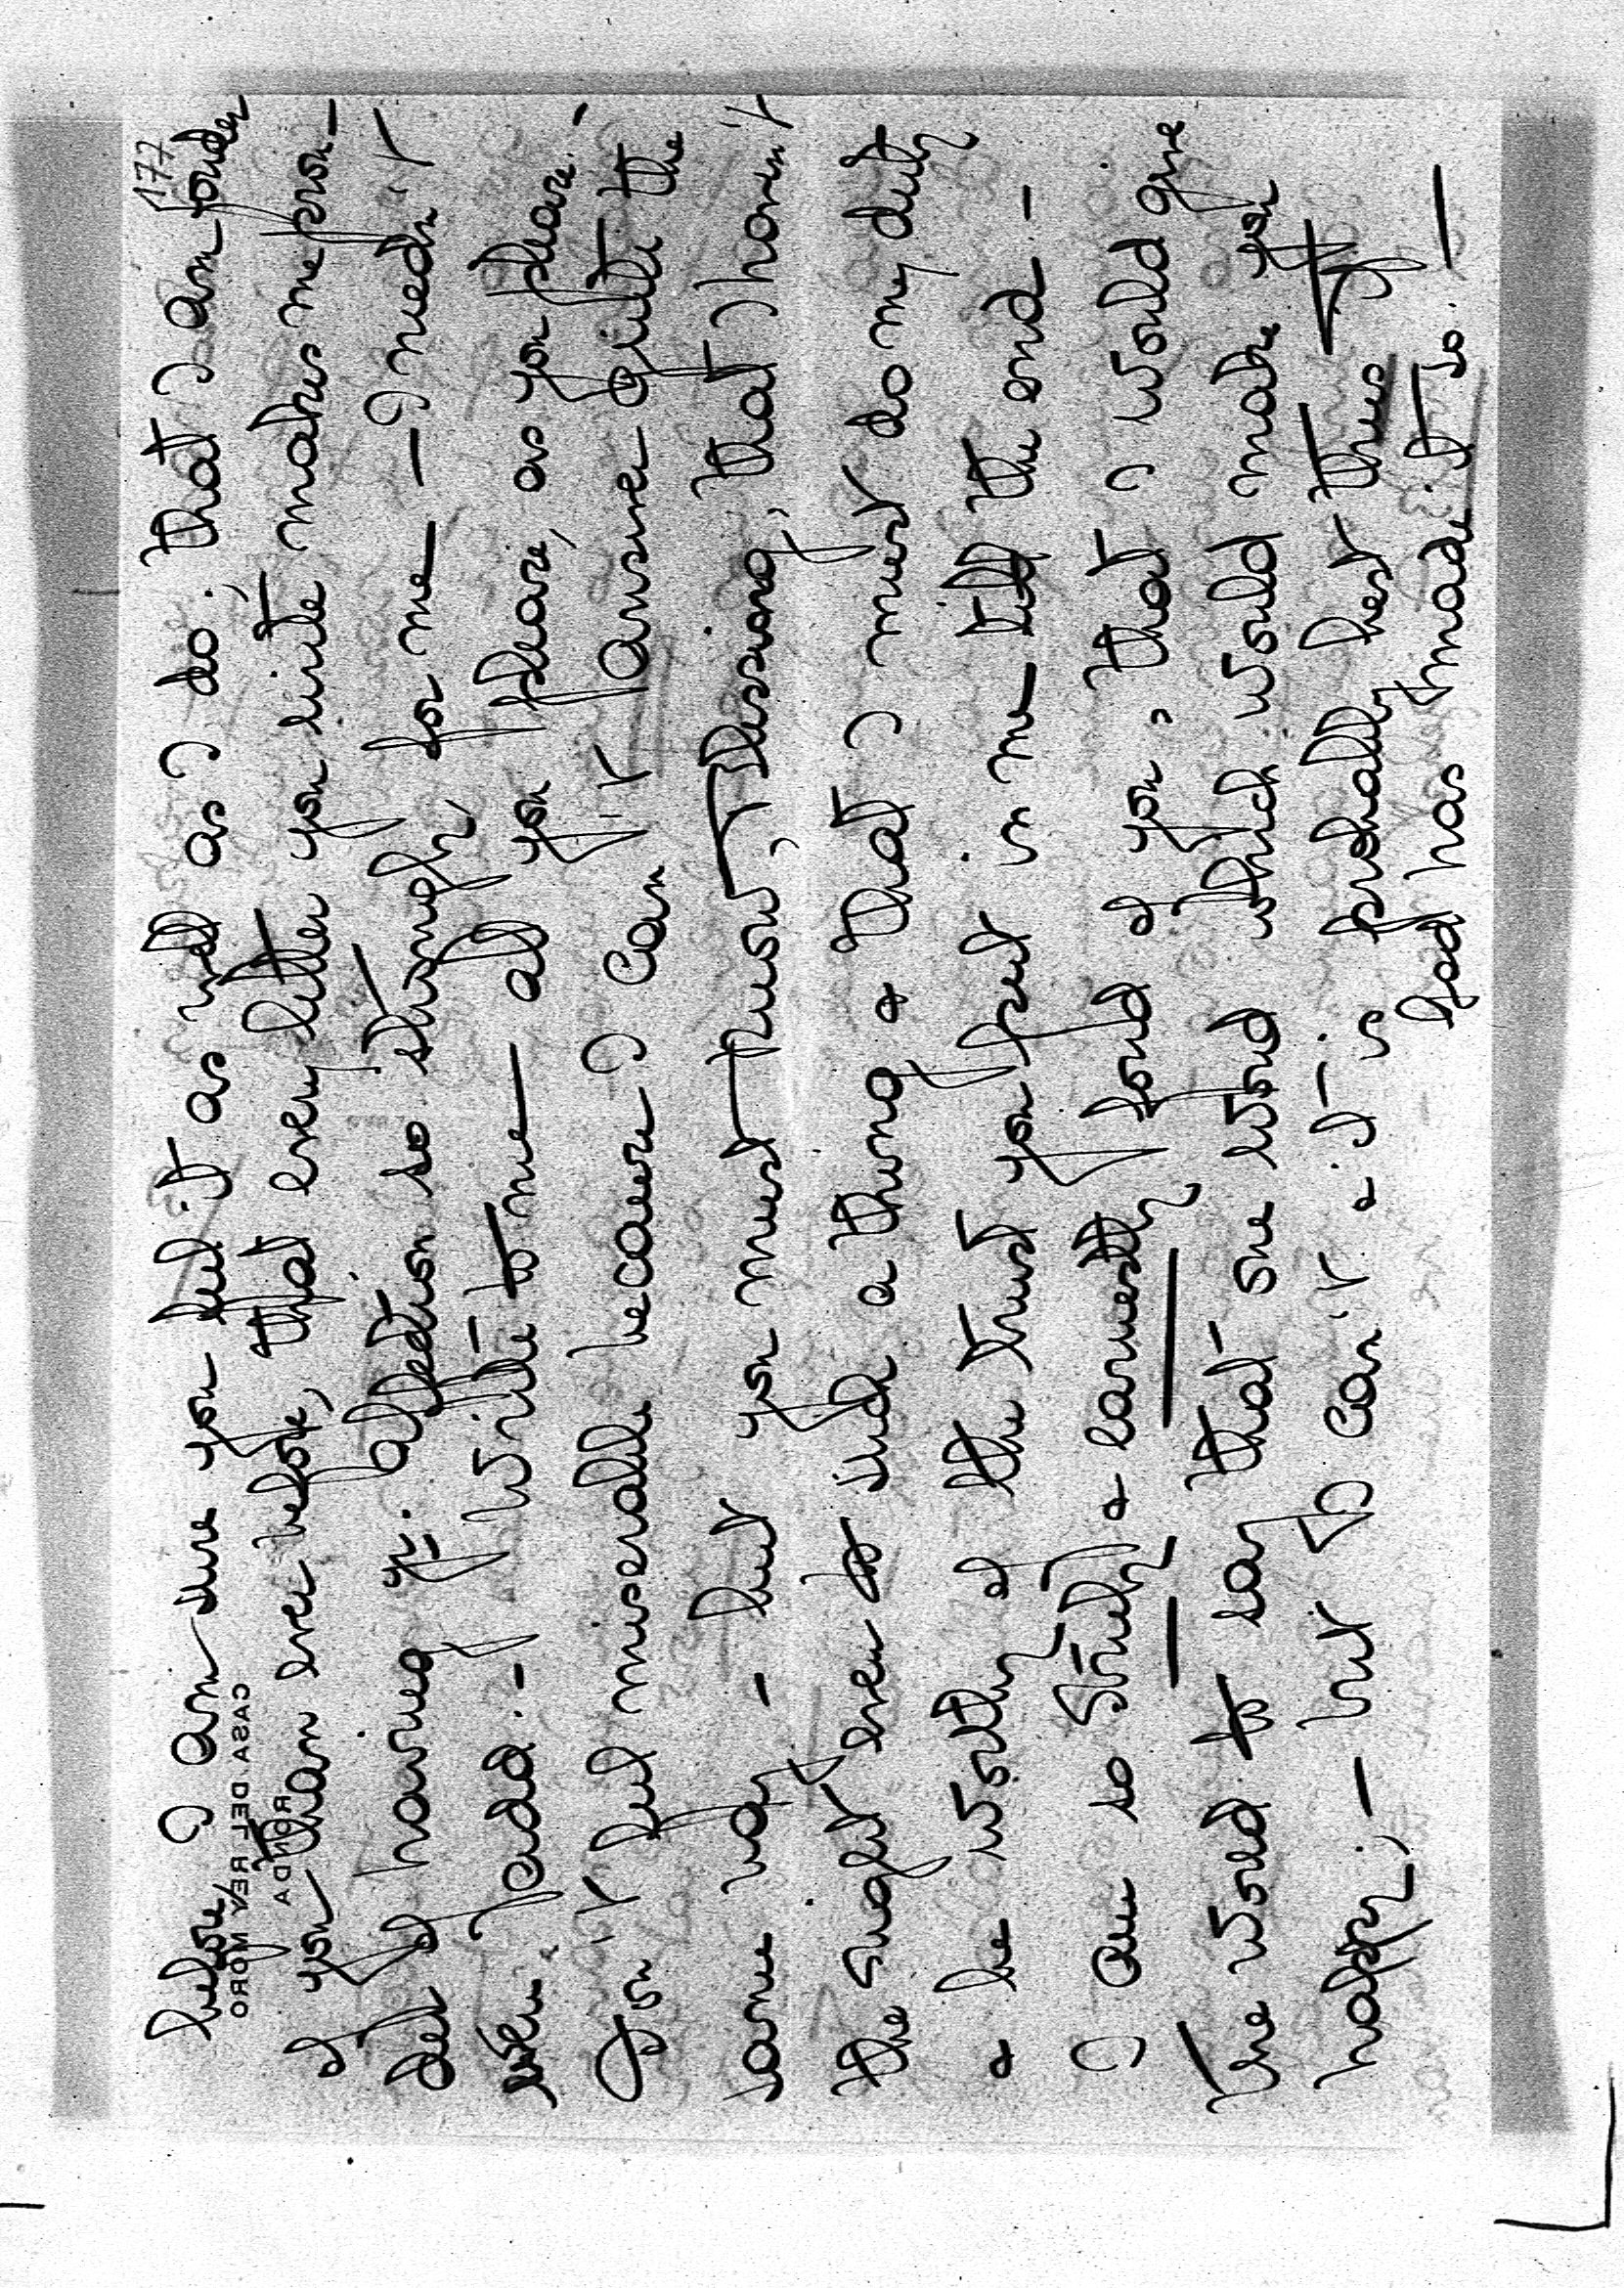 177
before, I am sure you feel it as well as I do. that I am fonder
of you than ever before, that every letter you write, makes me prou-
der of having yr. affection so strongly for me — I needn't
write to me — all you please, as you please.
Don't feel miserable because I can't answer quite the
same way — but you must trust, Blessing, that I haven't
the right even to such a thing & that I must do my duty
& be worthy of the trust you put in me — till the end —
I am so truly & earnestly fond of you, that I would give
the world to say that one word which would make you
happy; — but I can't & it is probably best thus — if
God has made it so. —
CASA DEL REY MORO
RONDA